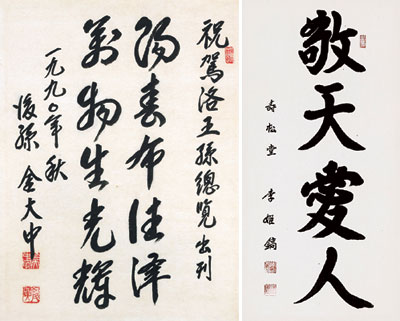 祝駕洛王孫總覽出刊
陽春布德澤
萬物生光輝
一九九〇年 秋
後孫 金大中
敬天愛人
壽松堂 李姬鎬